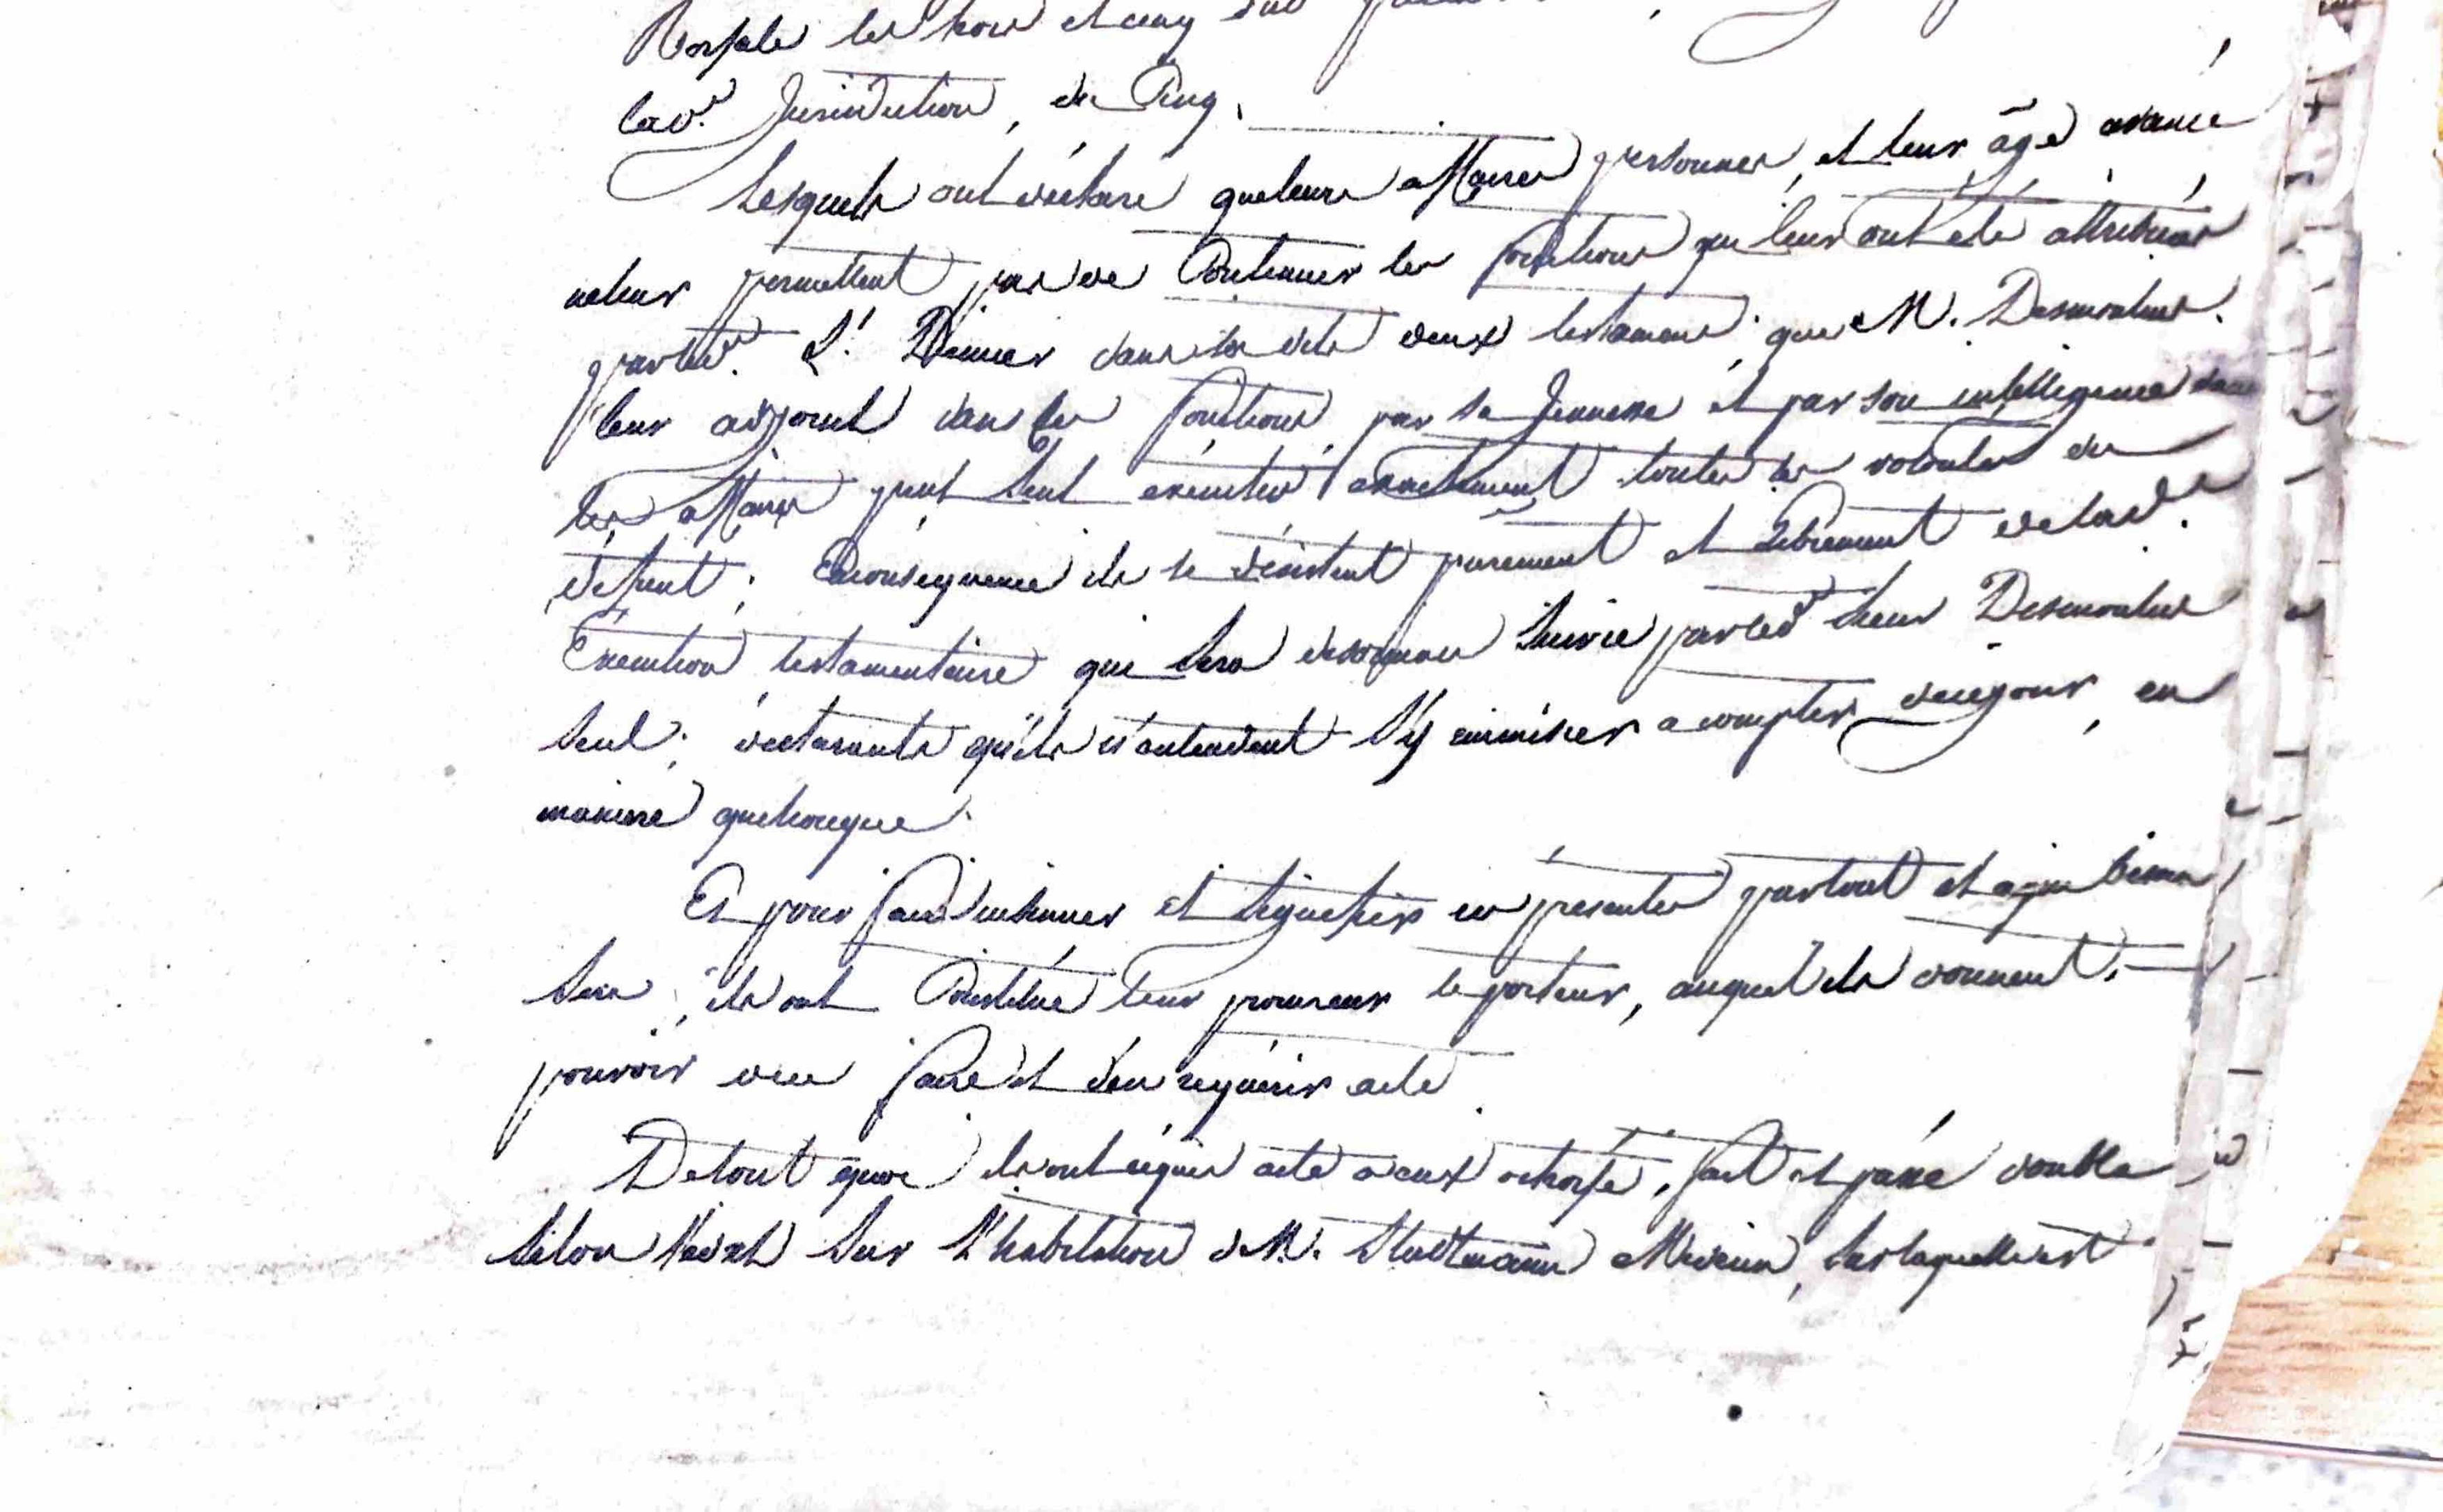 les trois et cinq
lad.e Jurisdiction, de Cinq.
Lesquels ont déclaré que leurs affaires personnes, et leur âge avancé
ne leur permettent pas de Continuer les fonctions qui leur ont été attribuées
par led. S.r dans sesdits deux testamens; que M. Desmoulins
leur adjoint dans les fonctions, par sa Jeunesse et par son intelligence dans
les affaires peut seul exécuter exactement toutes les volontés du
défunt; Enconséquence ils se désistent purement et Librement de lad.e
Exécution testamentaire qui sera désormais Suivie par led. Sieur Desmoulins
Seul; déclarants qu'ils n'entendent S'y immiscer a compter de cejour, en
maniere quelconque.
Et pour faire insinuer et signifier ces présentes partout et a qui besoin
sera, ils ont Constitué leur procureur le porteur, auquel ils donnent
pouvoir de ce faire et d'en requérir acte.
De tout quoi ils ont requis acte a eux octroyé, fait et passé double
sur L'habitation de M. Medecin, sur laquelle est